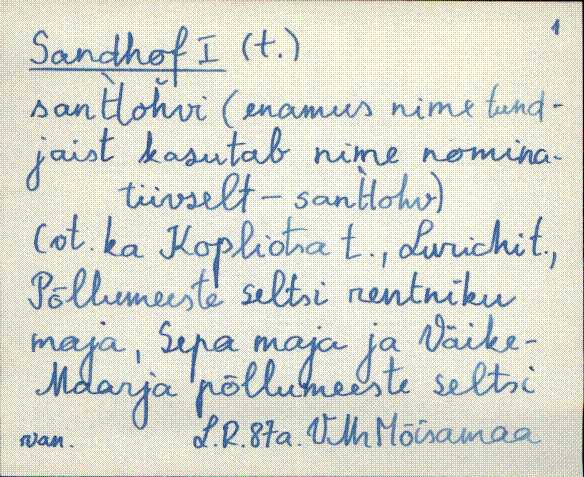 1
Sandhof I (t.)
santtohvi (enamus nime tund-
jaist kasutab nime nomina-
tiivselt – santtohv)
(vt. ka Kopliotsa t., Lurichi t.,
Põllumeeste seltsi rentniku
maja, Sepa maja ja Väike-
Maarja põllumeeste seltsi
van. L.R. 87a. VMr Mõisamaa